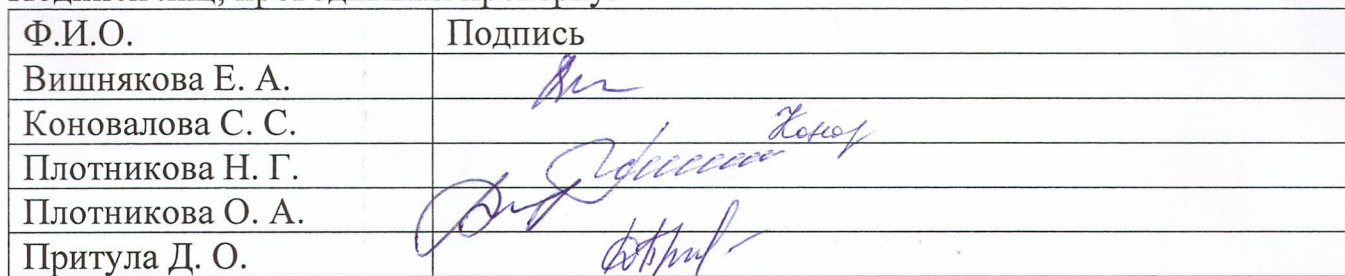 Ф.И.О. Подпись
Вишнякова Е. А.
Коновалова С. С. Конов
Плотникова Н. Г.
Плотникова О. А.
Притула Д. О.